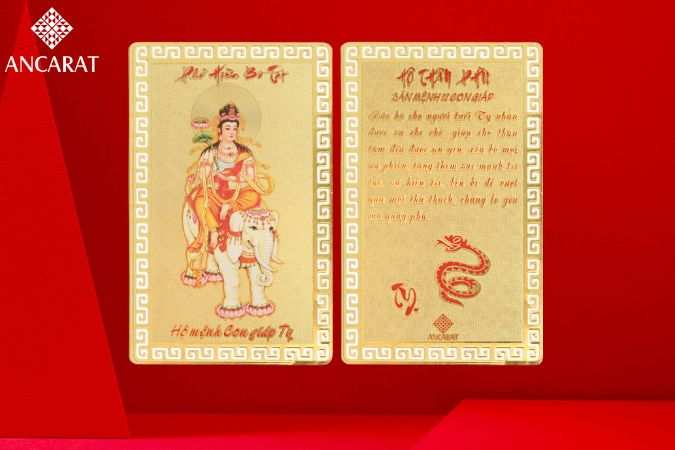 ANCARAT
Phổ Hiền Bồ Tát
Hộ mệnh Con giáp Tỵ
HỘ THÂN PHÙ
BẢN MỆNH 12 CON GIÁP
Bảo hộ cho người tuổi Tỵ nhận
được sự che chở, giúp cho thân
tâm đều được an yên, xóa bỏ mọi
ưu phiền, tăng thêm sức mạnh trí
tuệ và kiên trì, bền bỉ để vượt
qua mọi thử thách, chẳng lo yêu
ma quấy phá.
Tỵ
ANCARAT